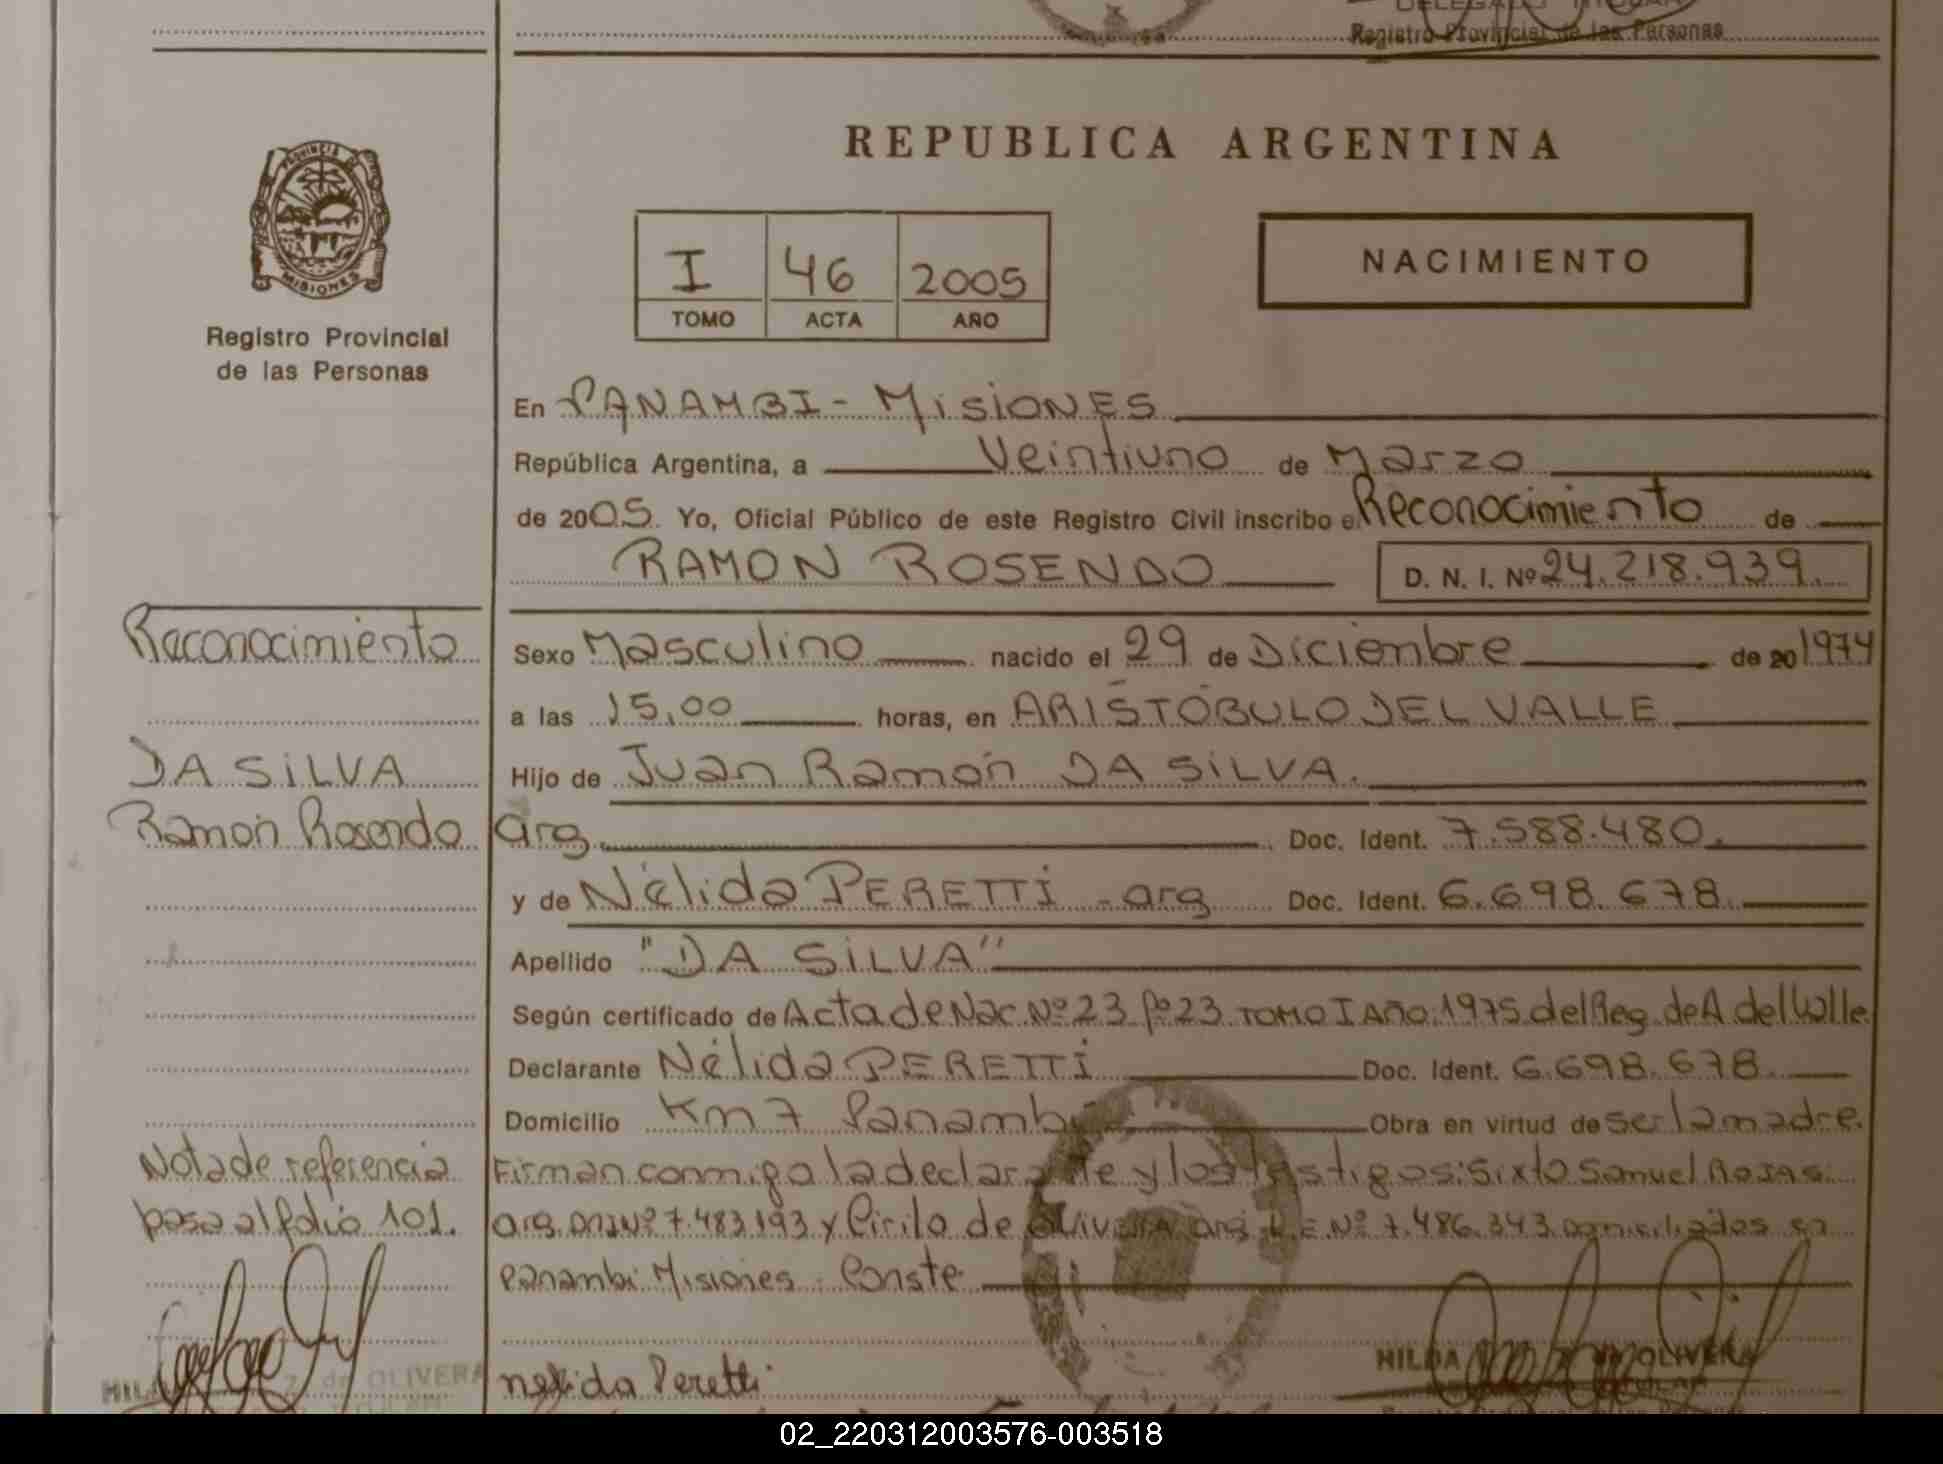 DELEGADO TITULAR
Registro Provincial de las Personas
REPUBLICA ARGENTINA
PROVINCIA DE
MISIONES
Registro Provincial
de las Personas
I 46 2005
TOMO ACTA AÑO
NACIMIENTO
En PANAMBI - MISIONES
República Argentina, a Veintiuno de Marzo
de 2005. Yo, Oficial Público de este Registro Civil inscribo e Reconocimiento de
RAMON ROSENDO D. N. I. Nº 24.218.939.
Reconocimiento
DA SILVA
Ramón Rosendo
Sexo Masculino nacido el 29 de Diciembre de 20 1974
a las 15,00 horas, en ARISTÓBULO DEL VALLE
Hijo de Juan Ramón DA SILVA.
arg. Doc. Ident. 7.588.480.
y de Nélida PERETTI - arg Doc. Ident. 6.698.678.
Apellido "DA SILVA"
Según certificado de Acta de Nac. Nº 23 fº 23 TOMO I AÑO 1975 del Reg. de A. del Valle.
Declarante Nélida PERETTI Doc. Ident. 6.698.678.
Domicilio Km 7 Panambi Obra en virtud de ser la madre.
Nota de referencia
pasa al folio 101.
Firman conmigo la declarante y los testigos: Sixto Samuel Rojas
arg. DNI Nº 7.483.193 y Cirilo de OLIVERA arg. L.E. Nº 7.486.343 domiciliados en
Panambi Misiones. Conste
Nelida Peretti
HILDA de OLIVERA
TITULAR
Z. de OLIVERA
TITULAR
02_220312003576-003518